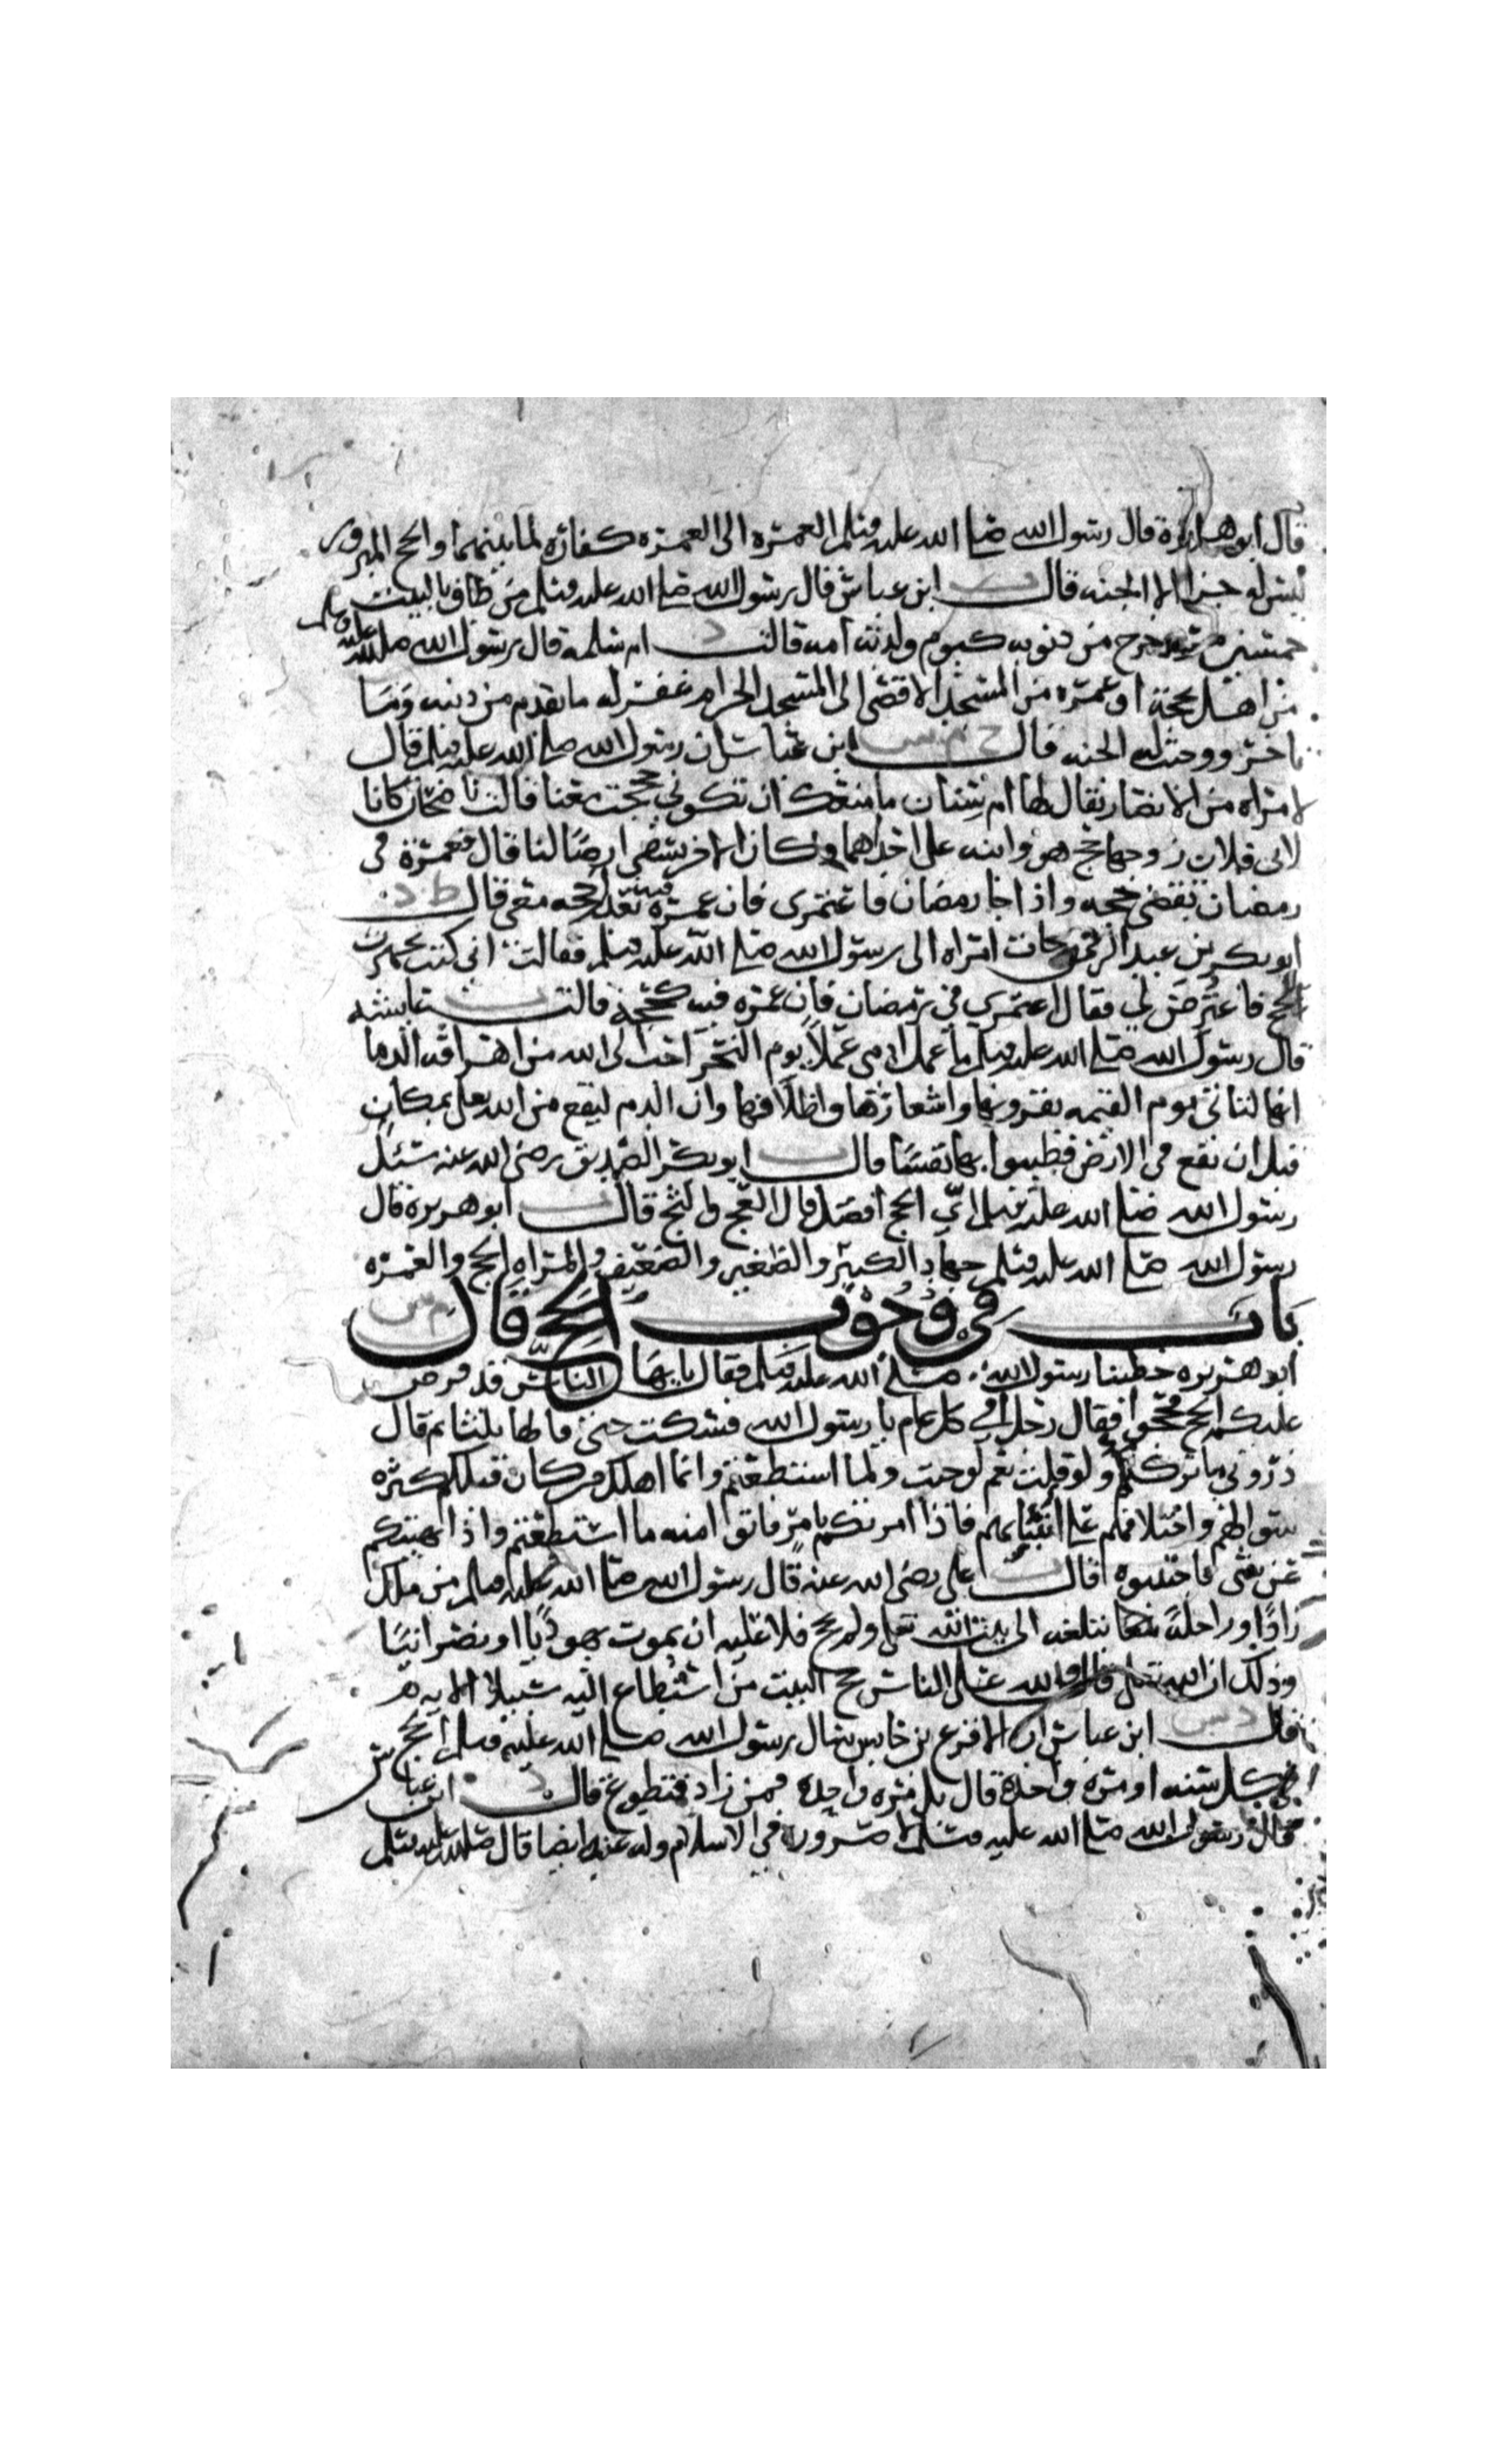 قال ابو هريرة قال رسول الله صلى الله عليه وسلم العمره الى العمره كفارة لما بينهما والحج المبرور
ليس له جزا الا الجنه قال ت ابن عباس قال رسول الله صلى الله عليه وسلم من طاف بالبيت
خمسين مره خرج من ذنوبه كيوم ولدته امه قالت د ام سلمه قال رسول الله صلى الله عليه وسلم
من اهل بحجة او عمره من المسجد الاقصى الى المسجد الحرام غفر له ما تقدم من ذنبه وما
تاخر ووجبت له الجنه قال خ م س ابن عباس ان رسول الله صلى الله عليه وسلم قال
لامراه من الانصار يقال لها ام سنان ما منعك ان تكوني حججت معنا قالت ناضحان كانا
لابي فلان زوجها حج هو وابنه على احدهما وكان الاخر يسقي ارضا لنا قال فعمرة في
رمضان تقضي حجه واذا جا رمضان فاعتمري فان عمرة فيه تعدل حجه معي قال ط د
ابو بكر بن عبد الرحمن جات امراه الى رسول الله صلى الله عليه وسلم فقالت اني كنت تجهزت
للحج فاعترض لي فقال اعتمري في رمضان فان عمره فيه كحجة قالت ت عايشه
قال رسول الله صلى الله عليه وسلم ما عمل ادمي عملا يوم النحر احب الى الله من اهراقه الدما
انها لتاتي يوم القيمه بقرونها واشعارها واظلافها وان الدم ليقع من الله تعلى بمكان
قبل ان يقع في الارض فطيبوا بها نفسا قال ت ابو بكر الصديق رضي الله عنه سئل
رسول الله صلى الله عليه وسلم اي الحج افضل قال العج والثج قال س ابو هريرة قال
رسول الله صلى الله عليه وسلم جهاد الكبير والصغير والضعيف والمراه الحج والعمره
باب في وجوب الحج قال م س
ابو هريره خطبنا رسول الله صلى الله عليه وسلم فقال يايها الناس قد فرض
عليكم الحج فحجوا فقال رجل افي كل عام يا رسول الله فسكت حتى قالها ثلثا ثم قال
ذروني ما تركتكم ولو قلت نعم لوجبت ولما استطعتم وانما اهلك من كان قبلكم كثره
سوالهم واختلافهم على انبيائهم فاذا امرتكم بامر فاتوا منه ما استطعتم واذا نهيتكم
عن شي فاجتنبوه قال ت علي رضي الله عنه قال رسول الله صلى الله عليه وسلم من ملك
زادا وراحلة تبلغه الى بيت الله تعلى ولم يحج فلا عليه ان يموت يهوديا او نصرانيا
وذلك ان الله تعلى قال ولله على الناس حج البيت من استطاع اليه سبيلا الايه
قال د س ابن عباس ان الاقرع بن حابس سال رسول الله صلى الله عليه وسلم الحج
في كل سنه او مره واحدة قال بل مره واحده فمن زاد فتطوع قال د ابن عباس
قال رسول الله صلى الله عليه وسلم لا صرورة في الاسلام وله عنه ايضا قال صلى الله عليه وسلم